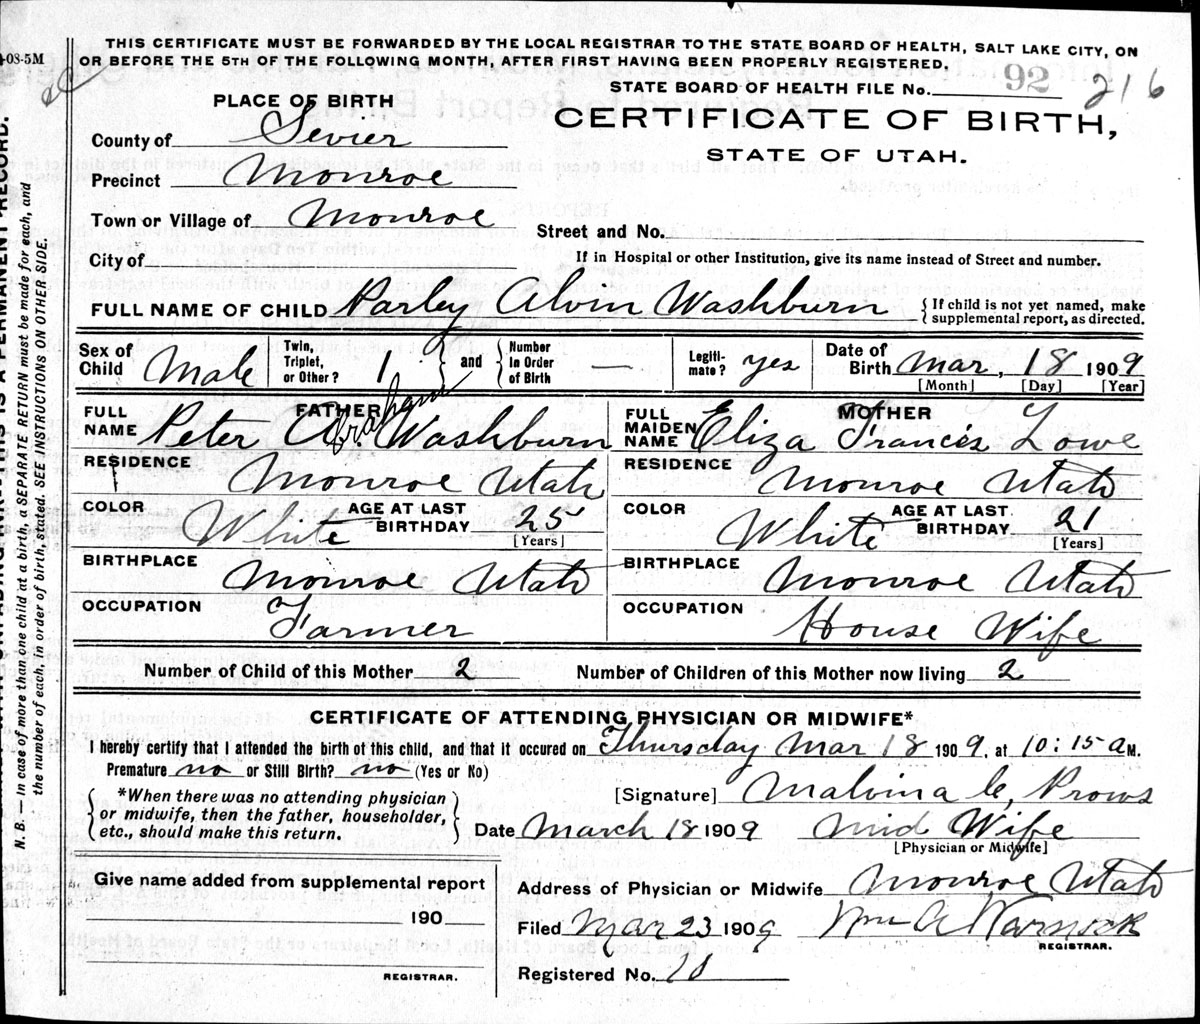 THIS CERTIFICATE MUST BE FORWARDED BY THE LOCAL REGISTRAR TO THE STATE BOARD OF HEALTH, SALT LAKE CITY, ON
OR BEFORE THE 5TH OF THE FOLLOWING MONTH, AFTER FIRST HAVING BEEN PROPERLY REGISTERED.
08-5M
STATE BOARD OF HEALTH FILE No. 92 216
PLACE OF BIRTH
CERTIFICATE OF BIRTH,
STATE OF UTAH.
County of Sevier
Precinct Monroe
Town or Village of Monroe
Street and No.
City of
If in Hospital or other Institution, give its name instead of Street and number.
FULL NAME OF CHILD Parley Alvin Washburn { If child is not yet named, make
supplemental report, as directed.
Sex of Child Male
Twin, Triplet, or Other? 1 } and { Number in Order of Birth —
Legiti-mate? yes
Date of Birth Mar, 18 1909
[Month] [Day] [Year]
FATHER
FULL NAME Peter Abraham Washburn
MOTHER
FULL MAIDEN NAME Eliza Francis Lowe
RESIDENCE Monroe Utah
RESIDENCE Monroe Utah
COLOR White AGE AT LAST BIRTHDAY 25 [Years]
COLOR White AGE AT LAST BIRTHDAY 21 [Years]
BIRTHPLACE Monroe Utah
BIRTHPLACE Monroe Utah
OCCUPATION Farmer
OCCUPATION House Wife
Number of Child of this Mother 2 Number of Children of this Mother now living 2
CERTIFICATE OF ATTENDING PHYSICIAN OR MIDWIFE*
I hereby certify that I attended the birth of this child, and that it occured on Thursday Mar 18 1909, at 10:15 a M.
Premature no or Still Birth? no (Yes or No)
*When there was no attending physician
or midwife, then the father, householder,
etc., should make this return.
[Signature] Malvina C, Prows
Date March 18 1909 Mid Wife
[Physician or Midwife]
Give name added from supplemental report
190
REGISTRAR.
Address of Physician or Midwife Monroe Utah
Filed Mar 23 1909 Wm A Warnock
REGISTRAR.
Registered No.
N. B.—In case of more than one child at a birth, a SEPARATE RETURN must be made for each, and
the number of each in order of birth, stated. SEE INSTRUCTIONS ON OTHER SIDE.
THIS IS A PERMANENT RECORD.